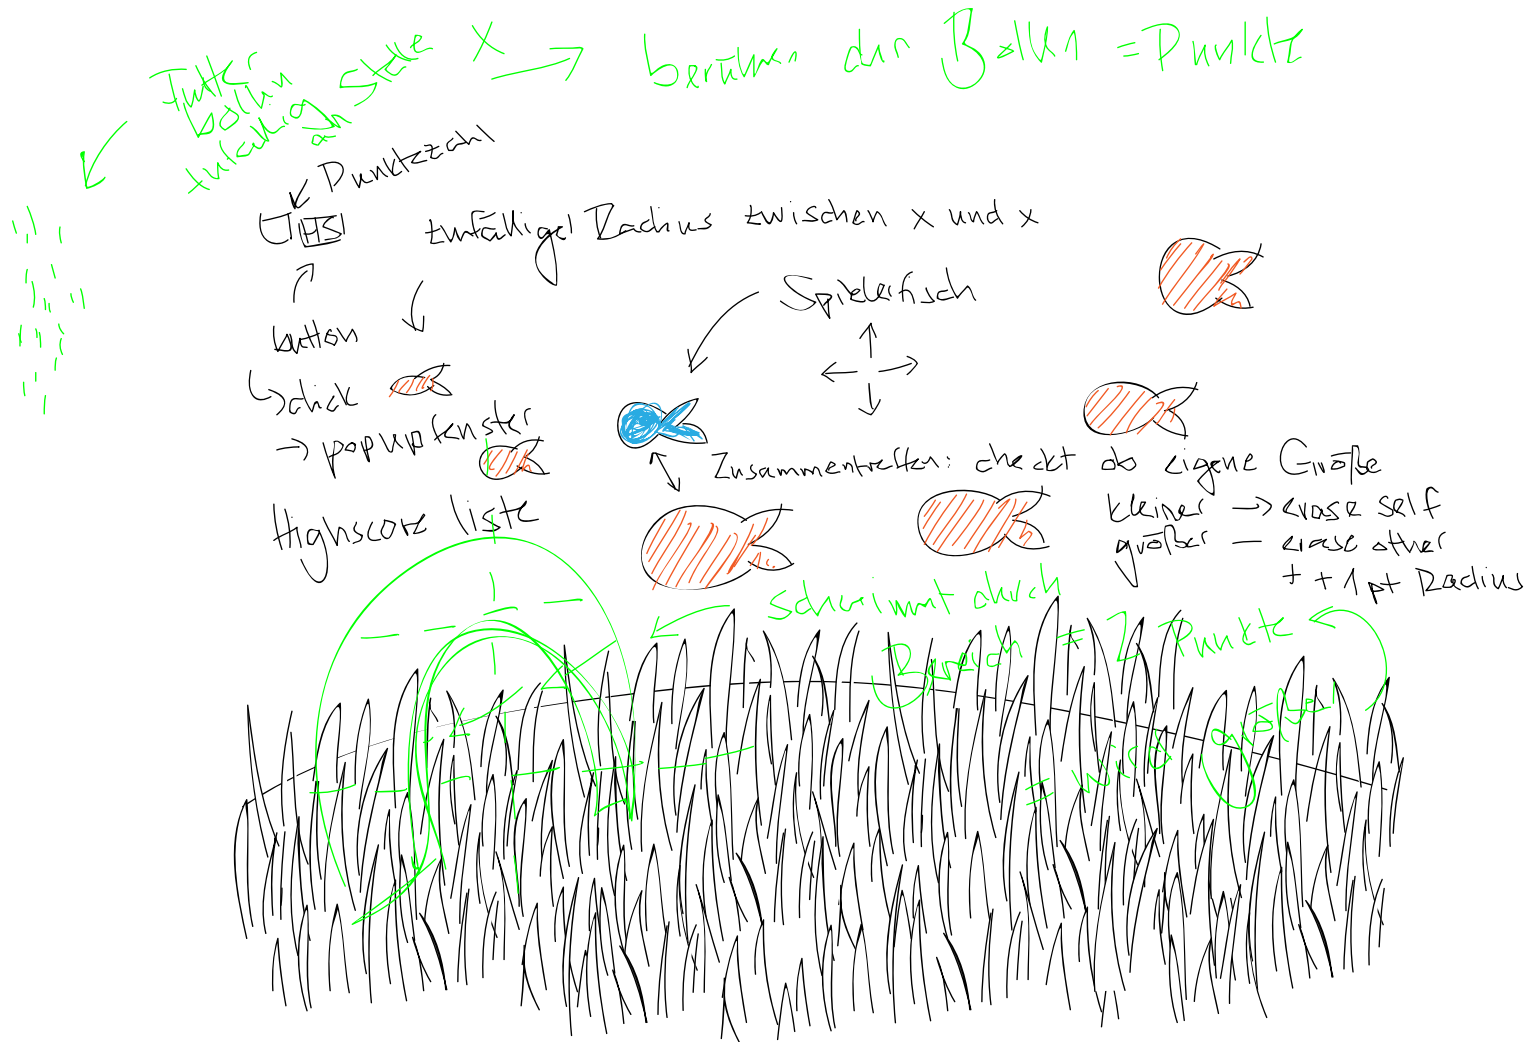 Futter
bollen
zufällig
an Stelle X → berühren den Bollen = Punkte
Punktezahl
HS
zufälliger Radius zwischen x und x
Spielerfisch
button
↳ click
→ popupfenster
Highscore liste
Zusammentreffen: checkt ob eigene Größe
kleiner → erase self
größer — erase other
+ +1 pt Radius
schwimmt durch
Bereich = 2 Punkte
= wird größer